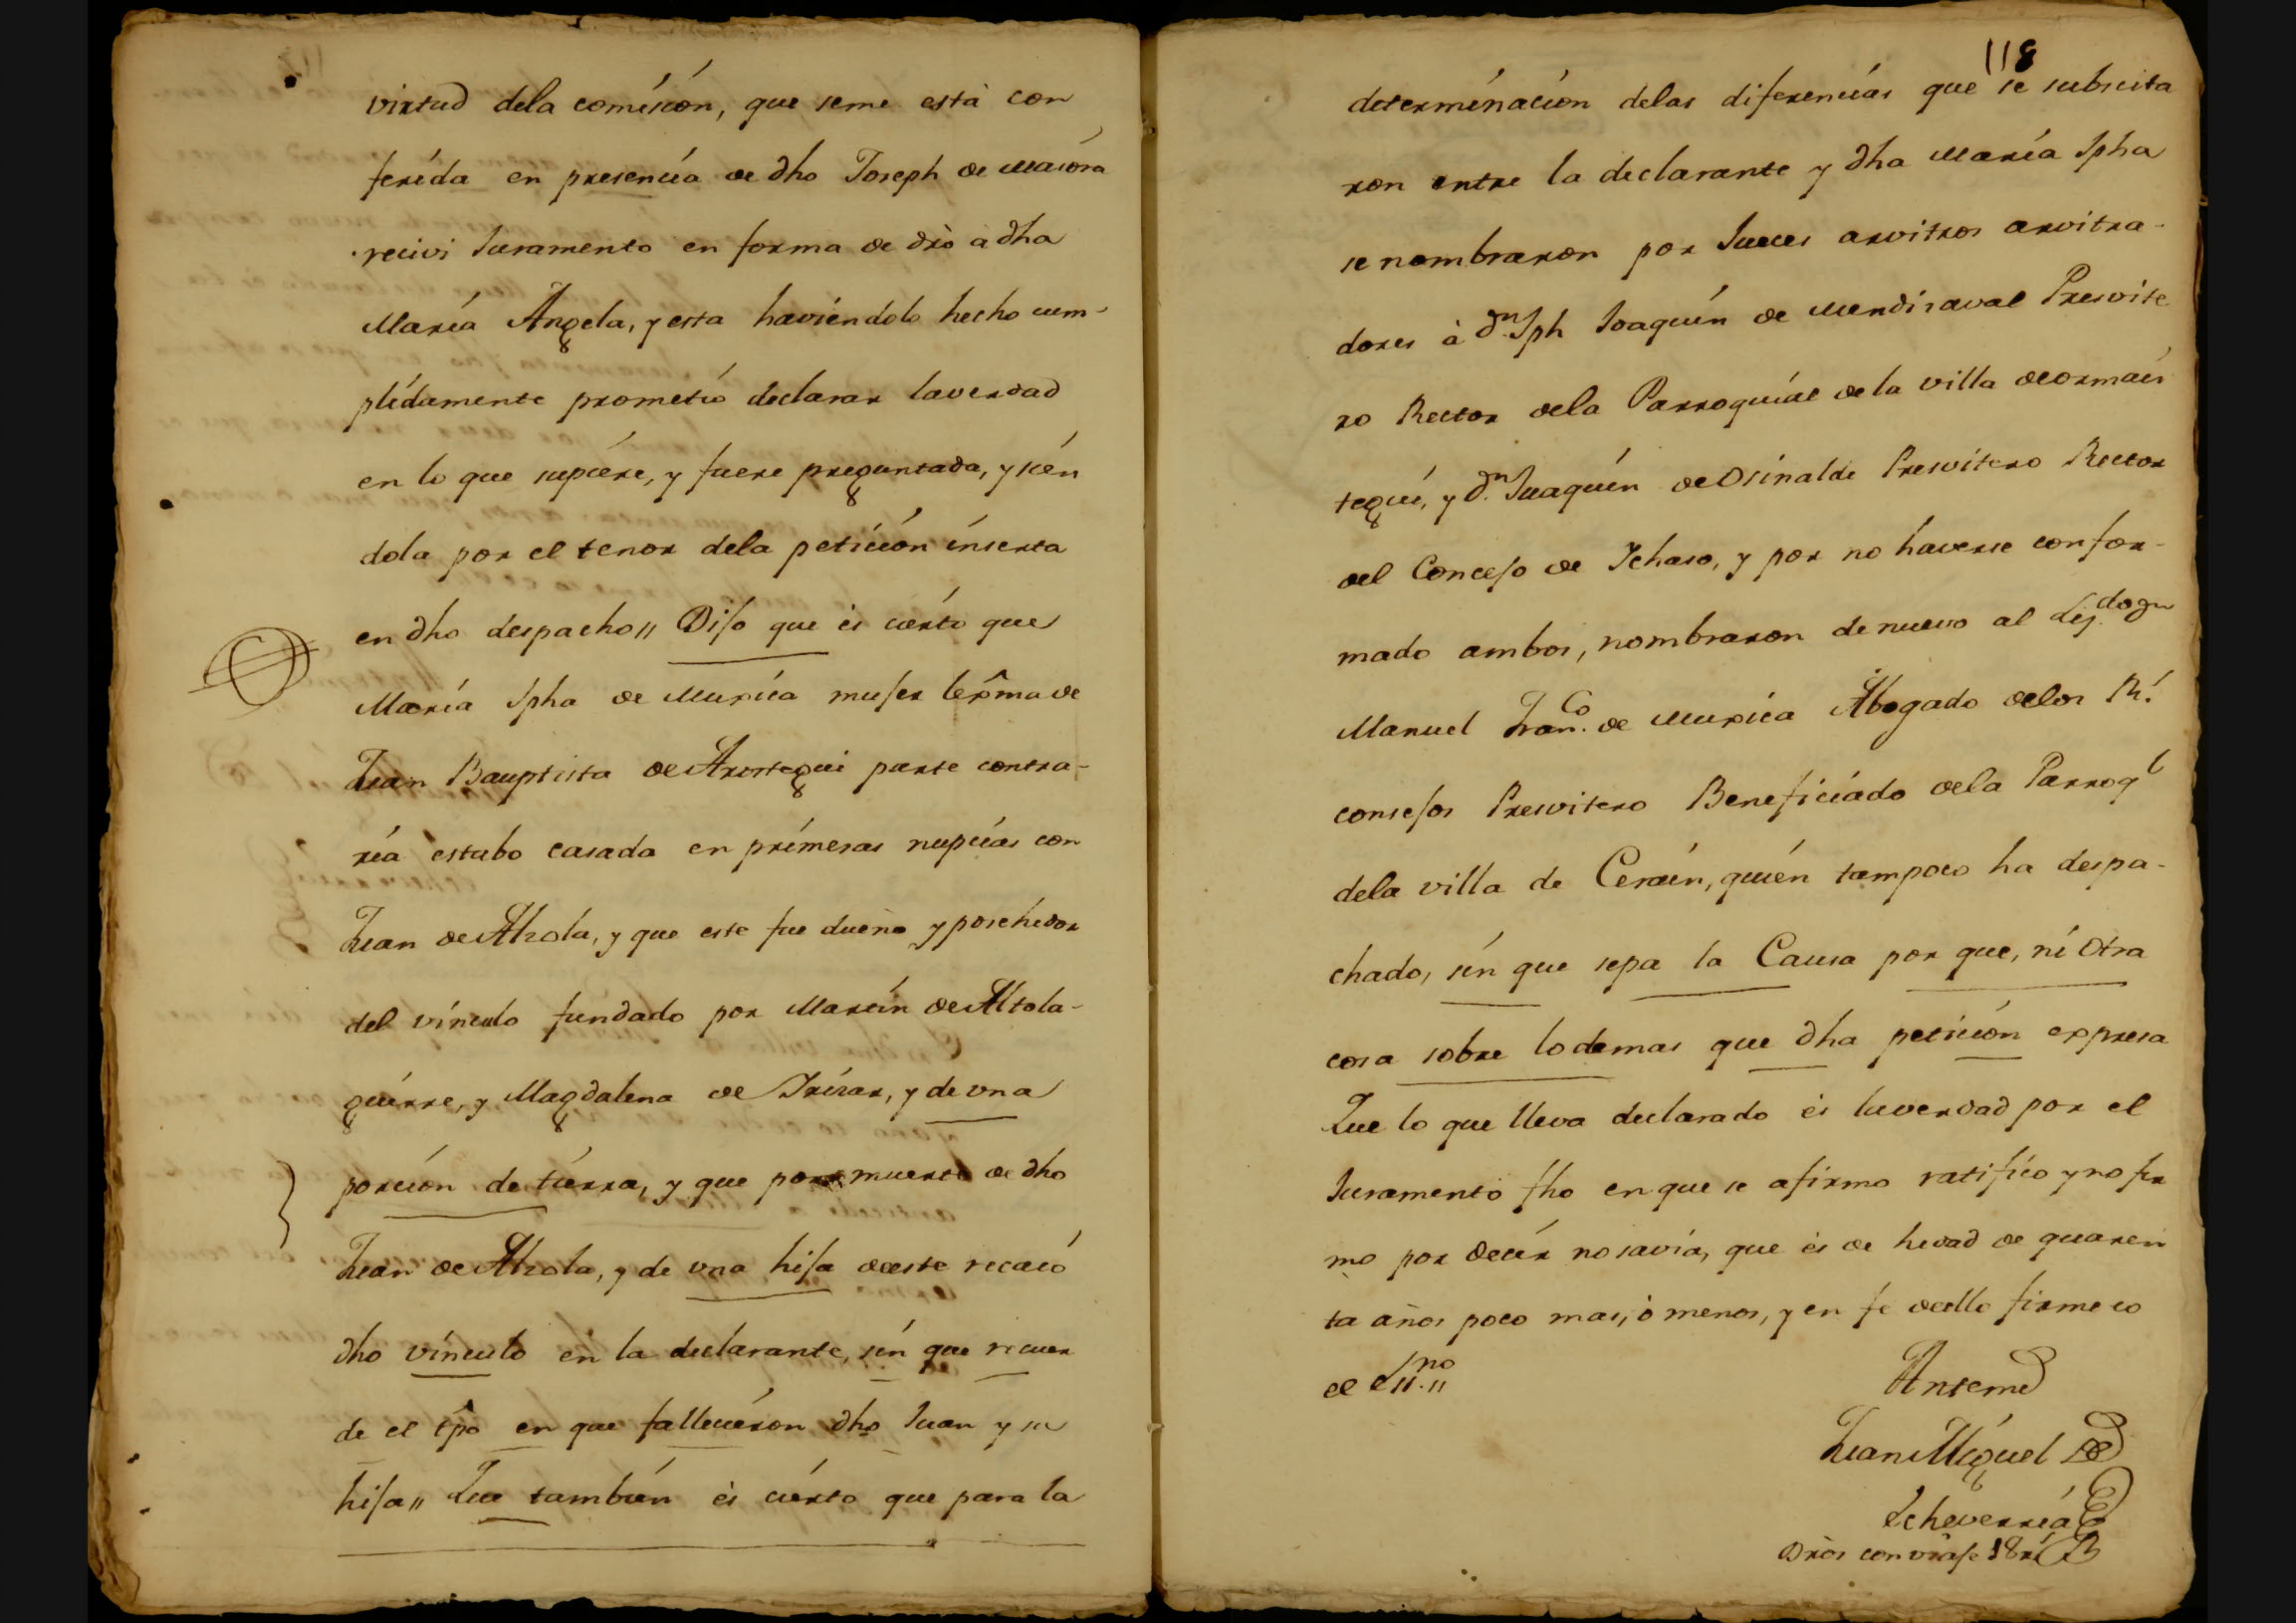 virtud dela comisión, que seme está con
ferida en presencia de dho Joseph de Maiora
recivi Juramento en forma de dro à dha
María Ángela, y esta haviéndolo hecho cum-
plidamente prometió declarar laverdad
en lo que supiere, y fuere preguntada, y sién
dola por el tenor dela petición inserta
en dho despacho,, Dijo que és cierto que
María Jpha de Murúa mujer lexma de
Juan Bauptista de Arostegui parte contra-
ria estubo casada en primeras nupcias con
Juan de Alzola, y que este fue dueño y posehedor
del vínculo fundado por Martín de Altola-
guirre, y Magdalena de Irízar, y de vna
porción de tierra, y que por muerte de dho
Juan de Alzola, y de vna hija deeste recaió
dho vínculo en la declarante, sin que recuer
de el tpo en que fallecieron dho Juan y su
hija,, Que también és cierto que para la
118
determinación delas diferencias que se subscita
ron entre la declarante y dha María Jpha
se nombraron por Jueces arvitros arvitra-
dores à Dn Jph Joaquín de Mendizaval Presvite
ro Rector dela Parroquial de la villa deormáis
tegui, y Dn Juaquín de Osinalde Presvitero Rector
del Concejo de Ichaso, y por no haverse confor-
mado ambos, nombraron de nuevo al Liz.do Dn
Manuel Fran.co de Murúa Abogado delos Rs
consejos Presvitero Beneficiado dela Parroql
dela villa de Ceraín, quién tampoco ha despa-
chado, sin que sepa la Causa por que, ni Otra
cosa sobre lodemas que dha petición expresa
Que lo que lleva declarado és laverdad por el
Juramento fho en que se afirmo ratifico y no fir
mo por decir no savía, que és de hedad de quaren
ta años poco mas, ò menos, y en fe deello firme io
el Ss.no,,
Antemi
Juan Miguel de
Echeverria
Dròs con viáje 18 rs